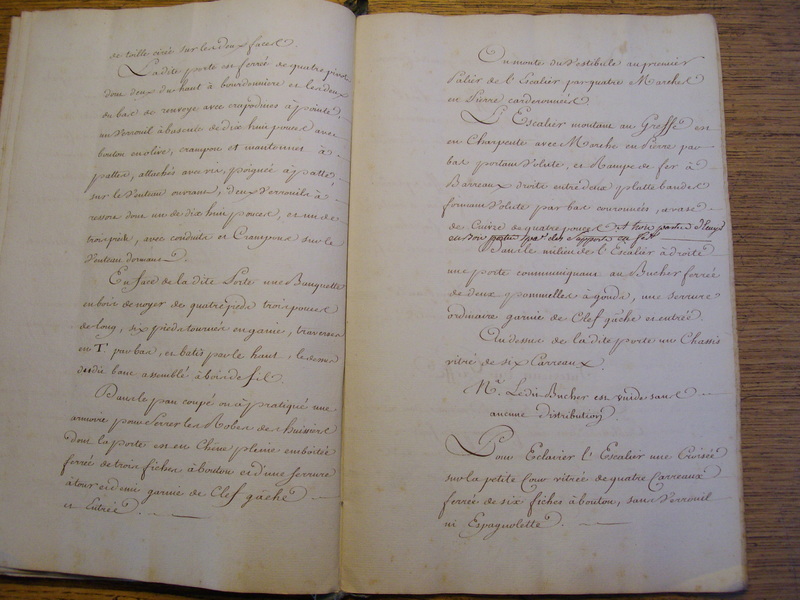 de toille cirée sur les deux faces.
La dite porte est ferrée de quatre pivots
dont deux du haut à bourdonniere et les deux
du bas de renvoye avec crapodines à pointe,
un Verrouil à bascule de dix huit pouces avec
bouton en olive, crampon et mantonnet à
pattes, attachés avec vis, poignée à patte,
sur le Venteau ouvrant, deux Verrouils à
ressort dont un de dix huit pouces, et un de
trois pieds, avec conduits et Crampons sur le
Venteau dormant.
En face de la dite Porte une Banquette
en bois de noyer de quatre pieds trois pouces
de long, six pieds tournés en gaine, traverses
en T. par bas, et batis par le haut, le dessus
du dit banc assemblé à bois de fil.
Dans le pan coupé on a pratiqué une
armoire pour serrer les Robes des huissiers
dont la porte est en Chêne pleine emboitée
ferrée de trois fiches à bouton et d'une serrure
à tour et demi garnie de Clef gâche
et Entrée.
On monte du Vestibule au premier
Palier de l'Escalier par quatre Marches
en Pierre carderonnées
L'Escalier montant au Greffe est
en Charpente avec Marche en Pierre par
bas portant Volute, et Rampe de fer à
Barreaux droits entre deux platte bandes
formant Volute par bas couronnée, a vase
de Cuivre de quatre pouces et
Dans le milieu de l'Escalier à droite
une porte communiquant au Bucher ferrée
de deux pommelles à gonds, une serrure
ordinaire garnie de Clef gâche et entrée.
Au dessus de la dite porte un Chassis
vitré de six Carreaux.
Nª. Le dit Bucher est vuide sans
aucune distribution
Pour Eclairer l'Escalier une Croisée
sur la petite Cour vitrée de quatre Carreaux
ferrée de six fiches à bouton, sans Verrouil
ni Espagnolette.